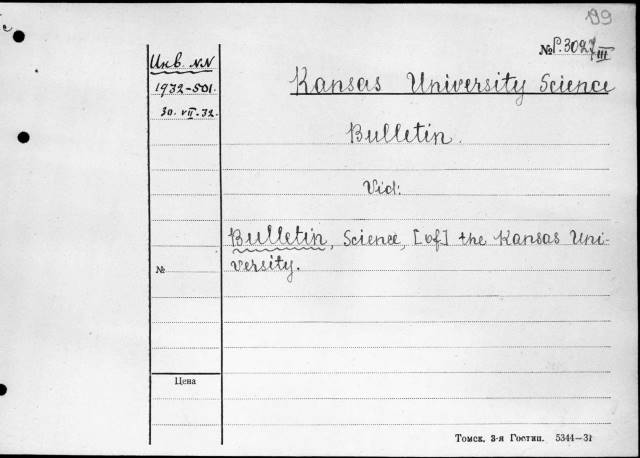 199
№ P.3027/III
Инв. NN
1932-501.
30.VII.32.
Kansas University Science
Bulletin.
Vid:
Bulletin, Science, [of] the Kansas Uni-
versity.
№
Цена
Томск, 3-я Гостип. 5344—31